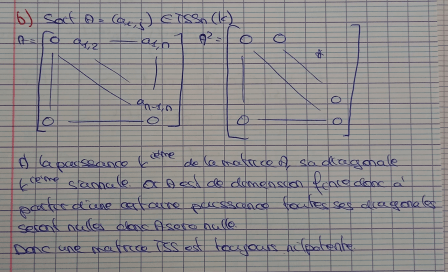 b) Soit A = (ai,j) ∈ TSSn(K)
A = [ 0 a1,2 — a1,n A² = [ 0 0
*
an-1,n 0
0 — 0 ] 0 — 0 ]
À la puissance k ième de la matrice A, sa diagonale
k ième s'annule or A est de dimension finie donc à
partir d'une certaine puissance toutes ses diagonales
seront nulles donc A sera nulle
Donc une matrice TSS est toujours nilpotente